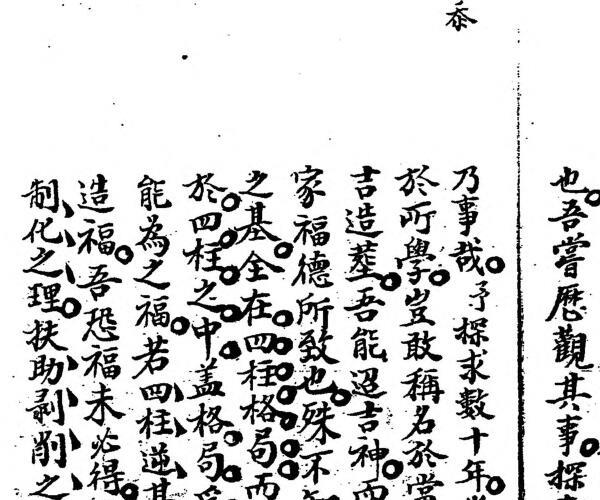 也吾嘗歷觀其事探
乃事哉予探求數十年
於所學豈敢稱名於當
吉造塟吾能迎吉神而
家福德所致也殊不
之基全在四柱格局而
於四柱之中盖格局
能為之福若四柱逆其
造福吾恐福未必得
制化之理扶助剥削之
叅